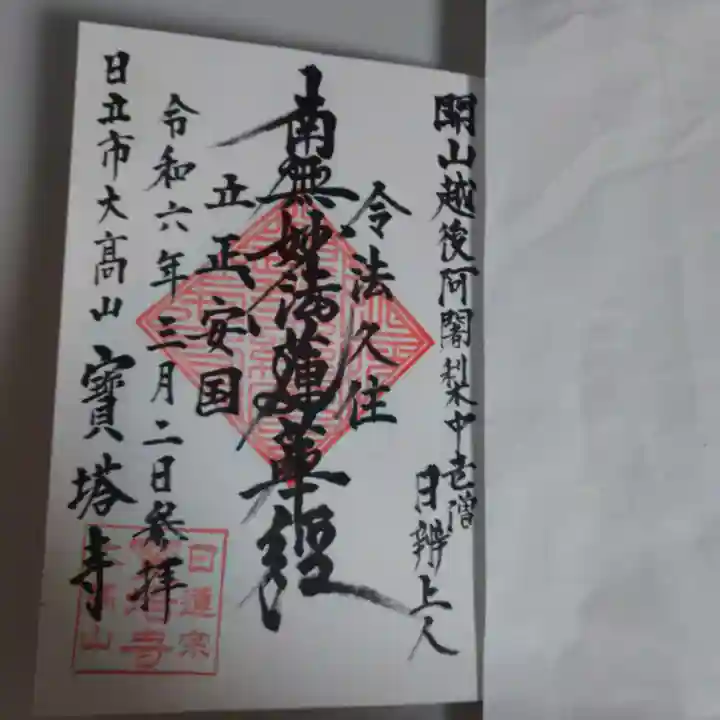 開山越後阿闍梨中老僧
日辨上人
令法久住
南無妙法蓮華經
立正安国
令和六年三月二日参拝
日立市大高山 寶塔寺
日蓮宗
寶塔寺
大高山